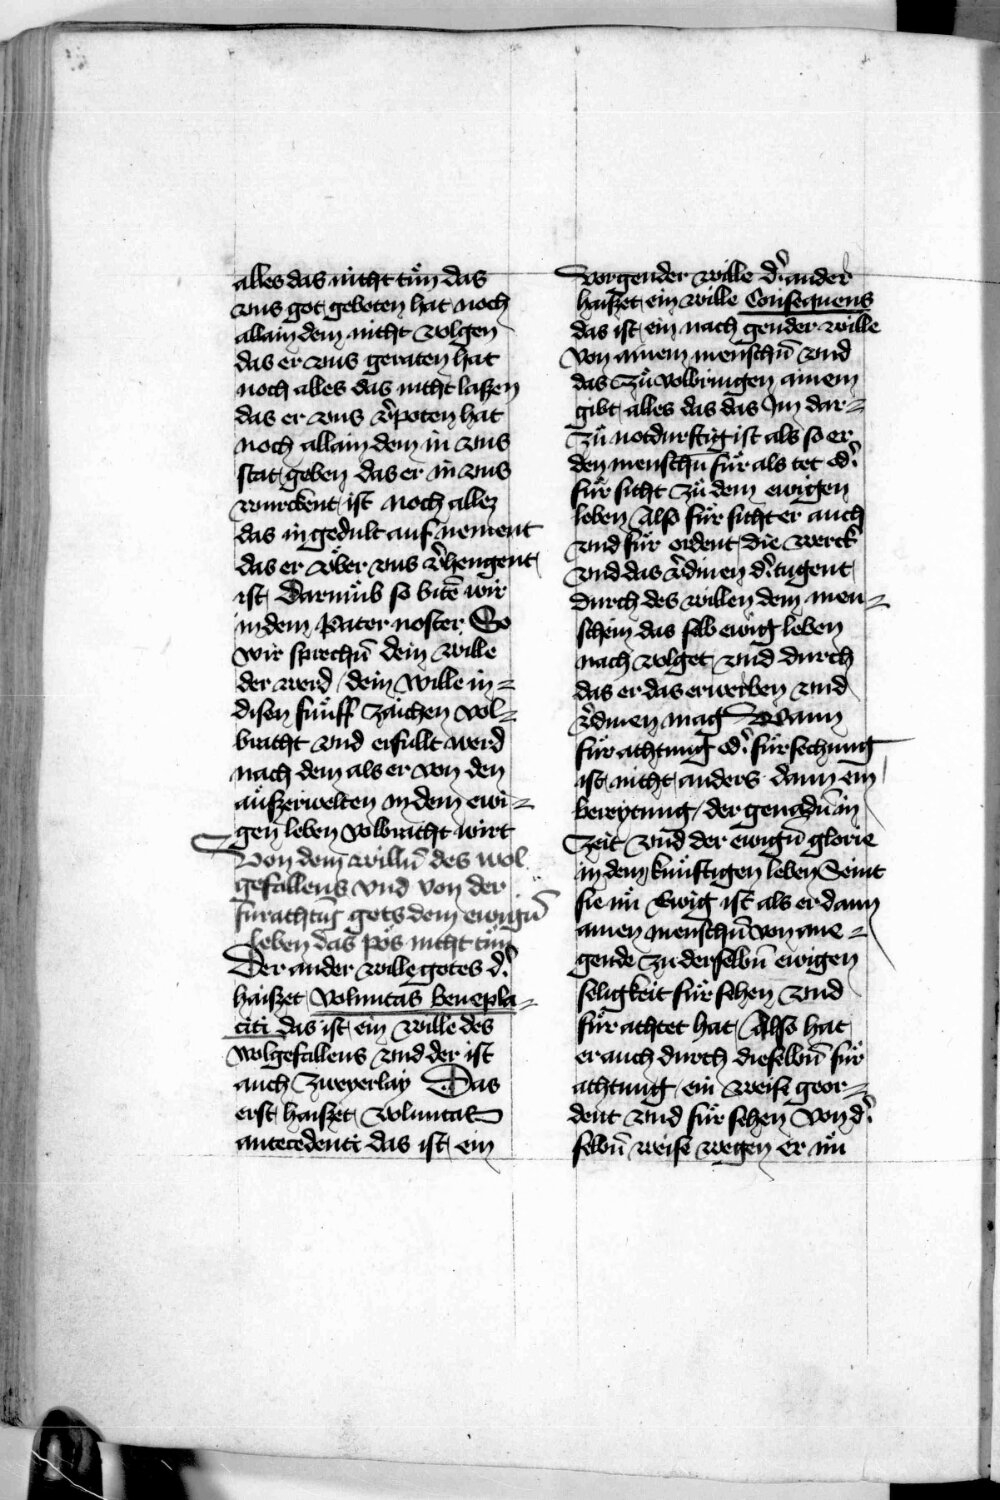 alles das nicht tuͦn das
vns got geboten hat noch
allain dem nicht volgen
das er vns geraten hat
noch alles das nicht laszen
das er vns v̉poten hat
noch allain dem in vns
stat geben das er in vns
wurckent ist noch allez
das in gedult auf nement
das er vͤber vns v̉hengent
ist Darumb so bitē wir
in dem Pater noster So
wir sprechn̄ dein wille
der werd / dein wille in =
disen fuͤnff zaichen vol =
bracht vnd erfullt werd
nach dem als er von den
auͤszerwelten in dem ewi =
gen leben volbracht wirt
Von dem willn̄ des wol
gefallens vnd von der
furachtūg gots dem ewign̄
leben das poͤs nicht tuͦn
Der ander wille gotes d̉
haiszet Voluntas benepla =
citi das ist ein wille des
wolgefallens vnd der ist
auch zweyerlay Das
erst haiszet voluntas
antecedenti das ist ein
vorgender wille d̉ ander
haiszet ein wille Consequens
das ist ein nach gender wille
von ainem menschn̄ vnd
das zuͦ volbringen ainem
gibt alles das das Im dar =
zuͦ notdurftig ist als so er
den menschn̄ fuͤr als tet od̉
fuͤr sicht zuͦ dem ewigen
leben Also fuͤr sicht er auch
vnd fuͤr ordent die werck
vnd das v̉dinen d̉ tugent
durch des willen dem men =
schein das selb ewig leben
nach volget vnd durch
das er das erwerben vnd
v̉dinen mag Wann
fuͤr achtung od̉ fuͤrsechung
ist nicht anders dann ein
bereytung der genadn̄ in
zeit vnd der ewign̄ glorie
in dem kuͤnftigen leben Seint
sie nuͦ Ewig ist als er dann
ainen menschn̄ von ane =
gende zu derselbn̄ ewigen
seligkeit fuͤr sehen vnd
fuͤr achtet hat / Also hat
er auch durch dieselbn̄ fuͤr
achtung ein weise geor =
dent vnd fuͤr sehen von d̉
selbn̄ weise wegen er nuͦ